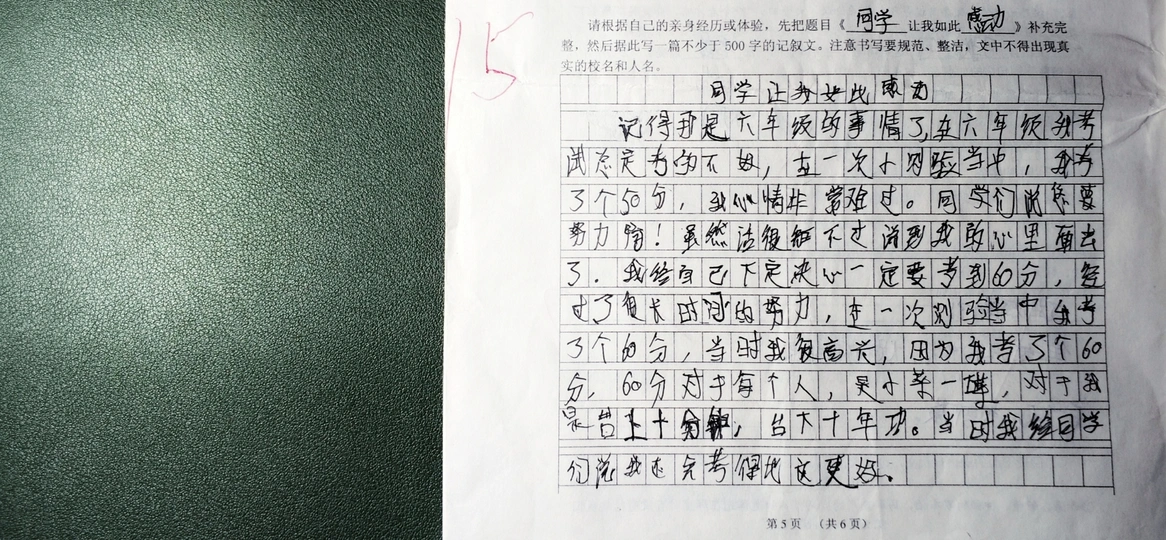 15
请根据自己的亲身经历或体验，先把题目《 同学 让我如此 感动 》补充完
整，然后据此写一篇不少于 500 字的记叙文。注意书写要规范、整洁，文中不得出现真
实的校名和人名。
同学让我如此感动
记得那是六年级的事情了,在六年级我考
试总是考的不好，在一次小测验当中，我考
了个50分，我心情非常难过。同学们说你要
努力啊！虽然话很短不过说到我的心里面去
了. 我给自己下定决心一定要考到60分，经
过了很长时间的努力，在一次测验当中我考
了个60分，当时我很高兴，因为我考了个60
分，60分对于每个人，是小菜一碟，对于我
是台上十分钟，台下十年功。当时我给同学
们说我还会考得比这更好。
第 5 页 （共 6 页）